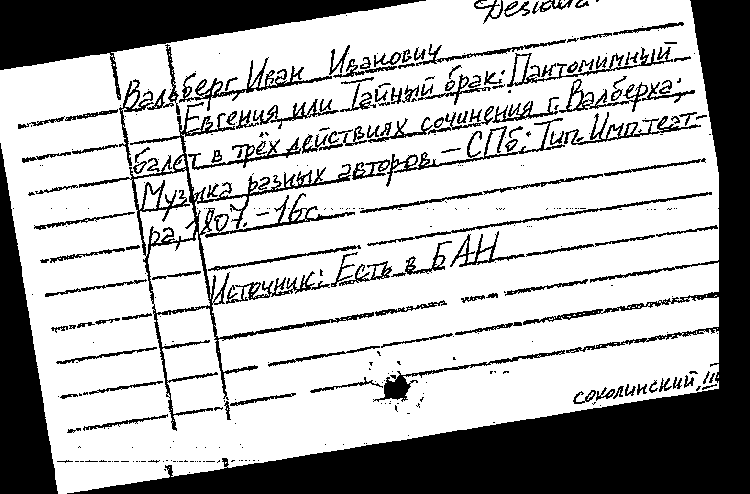 Desidera
Вальберг, Иван Иванович
Евгения, или Тайный брак: Пантомимный
балет в трёх действиях сочинения г. Валберха;
Музыка разных авторов. – СПб: Тип. Имп. теат-
ра, 1807. – 16 с.
Источник: Есть в БАН
соколинский, III